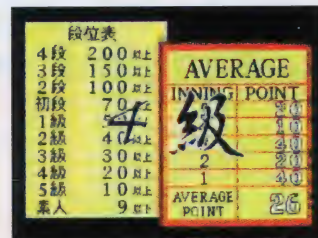 段位表
4段 200以上
3段 150以上
2段 100以上
初段 70以上
1級 5
2級 40以上
3級 30以上
4級 20以上
5級 10以上
素人 9以下
4級
AVERAGE
INNING POINT
30
10
40
2 20
1 40
AVERAGE POINT 26